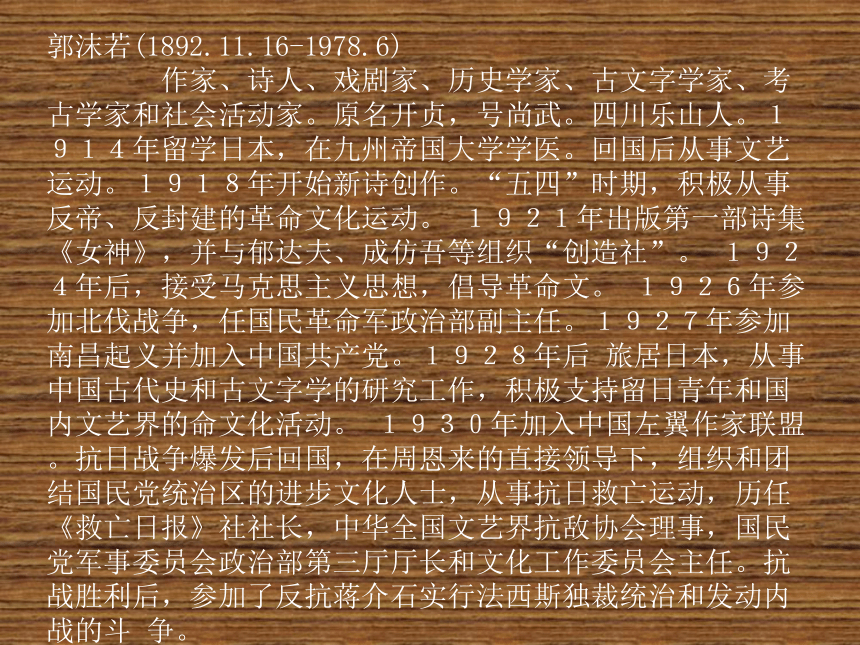 郭沫若(1892.11.16-1978.6)
作家、诗人、戏剧家、历史学家、古文字学家、考
古学家和社会活动家。原名开贞，号尚武。四川乐山人。１
９１４年留学日本，在九州帝国大学学医。回国后从事文艺
运动。１９１８年开始新诗创作。“五四”时期，积极从事
反帝、反封建的革命文化运动。 １９２１年出版第一部诗集
《女神》，并与郁达夫、成仿吾等组织“创造社”。 １９２
４年后，接受马克思主义思想，倡导革命文。 １９２６年参
加北伐战争，任国民革命军政治部副主任。１９２７年参加
南昌起义并加入中国共产党。１９２８年后 旅居日本，从事
中国古代史和古文字学的研究工作，积极支持留日青年和国
内文艺界的命文化活动。 １９３０年加入中国左翼作家联盟
。抗日战争爆发后回国，在周恩来的直接领导下，组织和团
结国民党统治区的进步文化人士，从事抗日救亡运动，历任
《救亡日报》社社长，中华全国文艺界抗敌协会理事，国民
党军事委员会政治部第三厅厅长和文化工作委员会主任。抗
战胜利后，参加了反抗蒋介石实行法西斯独裁统治和发动内
战的斗 争。